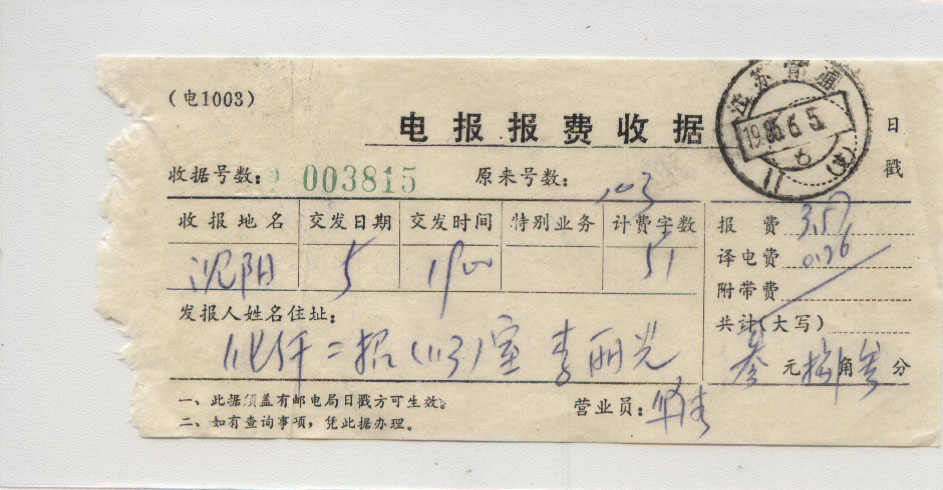 (电1003)
电报报费收据
江苏
6
11
(4)
日戳
收据号数: 003815 原来号数:
收报地名 交发日期 交发时间 特别业务 计费字数
沈阳 5 1900 51
报费 3.57
译电费 0.26
附带费
共计(大写)
叁元捌角叁分
发报人姓名住址:
二招(113)室 李丽光
一、此据须盖有邮电局日戳方可生效。
二、如有查询事项,凭此据办理。
营业员: